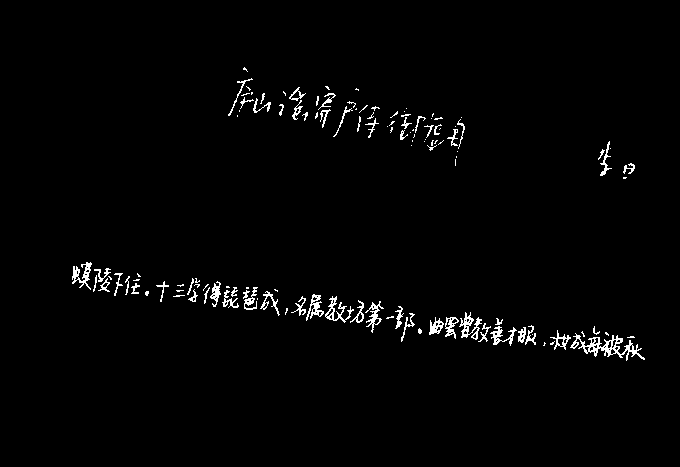 庐山谣寄卢侍御虚舟
李白
蟆陵下住。十三学得琵琶成,名属教坊第一部。曲罢曾教善才服,妆成每被秋